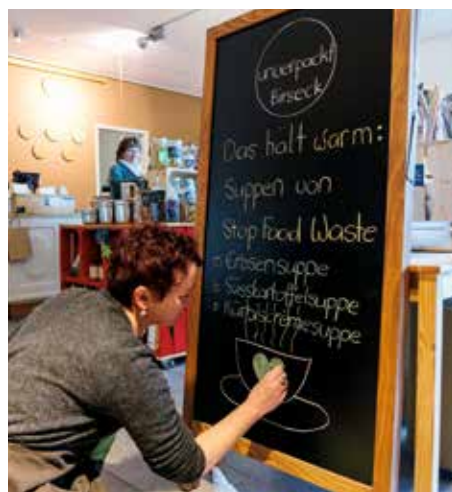 unverpackt
Birseck
Das hält warm:
Suppen von
Stop Food Waste
Erbsensuppe
Süsskartoffelsuppe
Kürbiscremesuppe